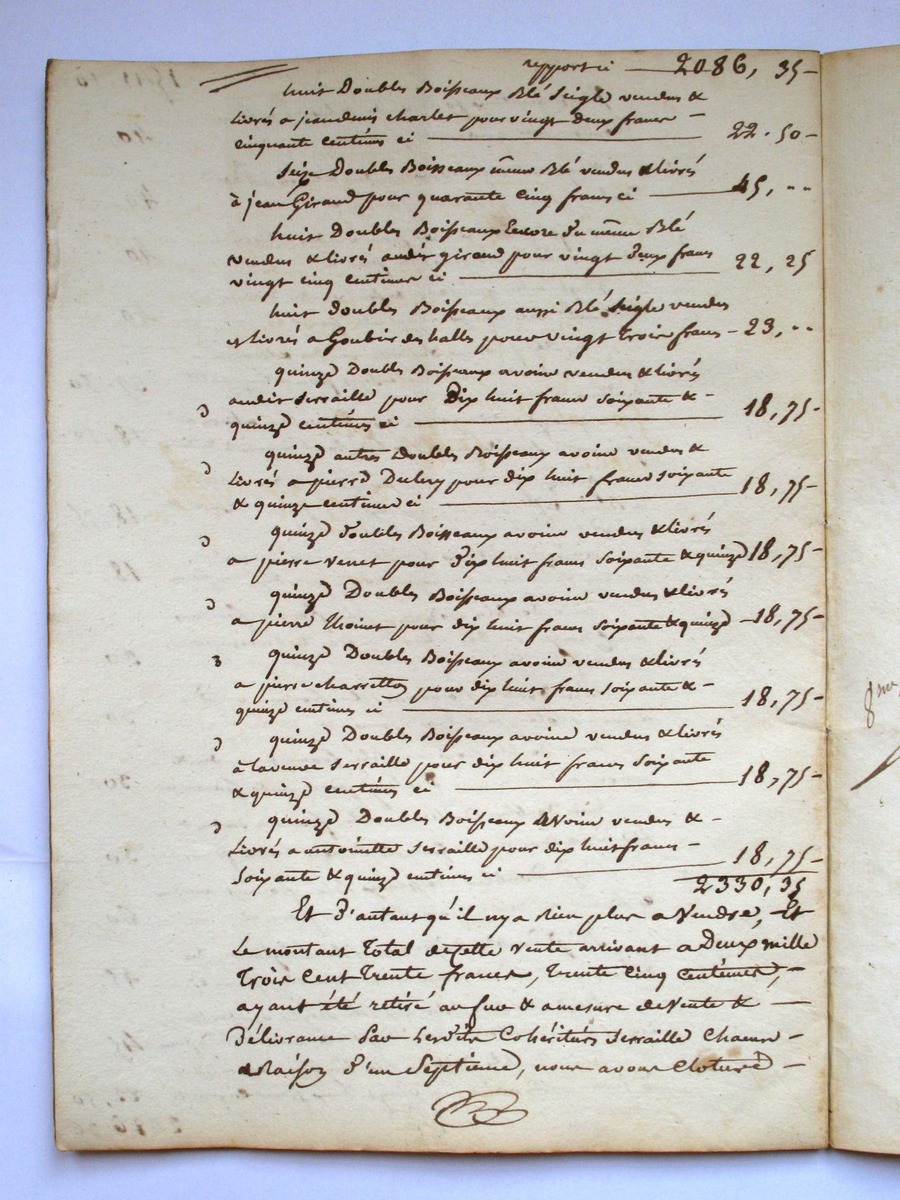 report ci — 2086, 35 –
huit Doubles Boisseaux Blé Seigle vendus &
Livrés a jean denis charles pour vingt deux francs –
cinquante centimes ci — 22. 50 –
Seize Doubles Boisseaux même Blé vendus & livrés
à jean Giraud pour quarante cinq francs ci — 45, --
huit Doubles Boisseaux Encore du même Blé
vendus & livrés audit giraud pour vingt deux francs
vingt cinq centimes ci — 22, 25
huit doubles Boisseaux aussi Blé Seigle vendus
et livrés a Goubier des halles pour vingt trois francs – 23, --
quinze Doubles Boisseaux avoine vendus & livrés
audit Serraille pour Dix huit francs soixante & –
quinze centimes ci — 18, 75 –
quinze autres Doubles Boisseaux avoine vendus &
Livrés a pierre pour dix huit francs soixante
& quinze centimes ci — 18, 75 –
quinze doubles Boisseaux avoine vendus & livrés
a pierre venet pour Dix huit francs Soixante & quinze 18, 75 –
quinze Doubles Boisseaux avoine vendus & livrés
a pierre pour dix huit francs Soixante & quinze – 18, 75 –
quinze Doubles Boisseaux avoine vendus & livrés
a pierre charretton pour dix huit francs soixante & –
quinze centimes ci — 18, 75 –
quinze Doubles Boisseaux avoine vendus & livrés
à la veuve Serraille pour dix huit francs Soixante
& quinze centimes ci — 18, 75 –
quinze Doubles Boisseaux Avoine vendus & –
Livrés a antoinette Serraille pour dix huit francs –
Soixante & quinze centimes ci — 18, 75 –
2330, 35
Et D'autant qu'il ny a Rien plus a Vendre, Et
Le montant Total de cette vente arrivant a Deux mille
Trois cent Trente francs, Trente cinq centimes, –
ayant été retiré au fur & amesure de Vente & —
Délivrance par Lesdits Cohéritiers Serraille Chacun –
a Raison D'un Septieme, nous avons Cloturé –
8me